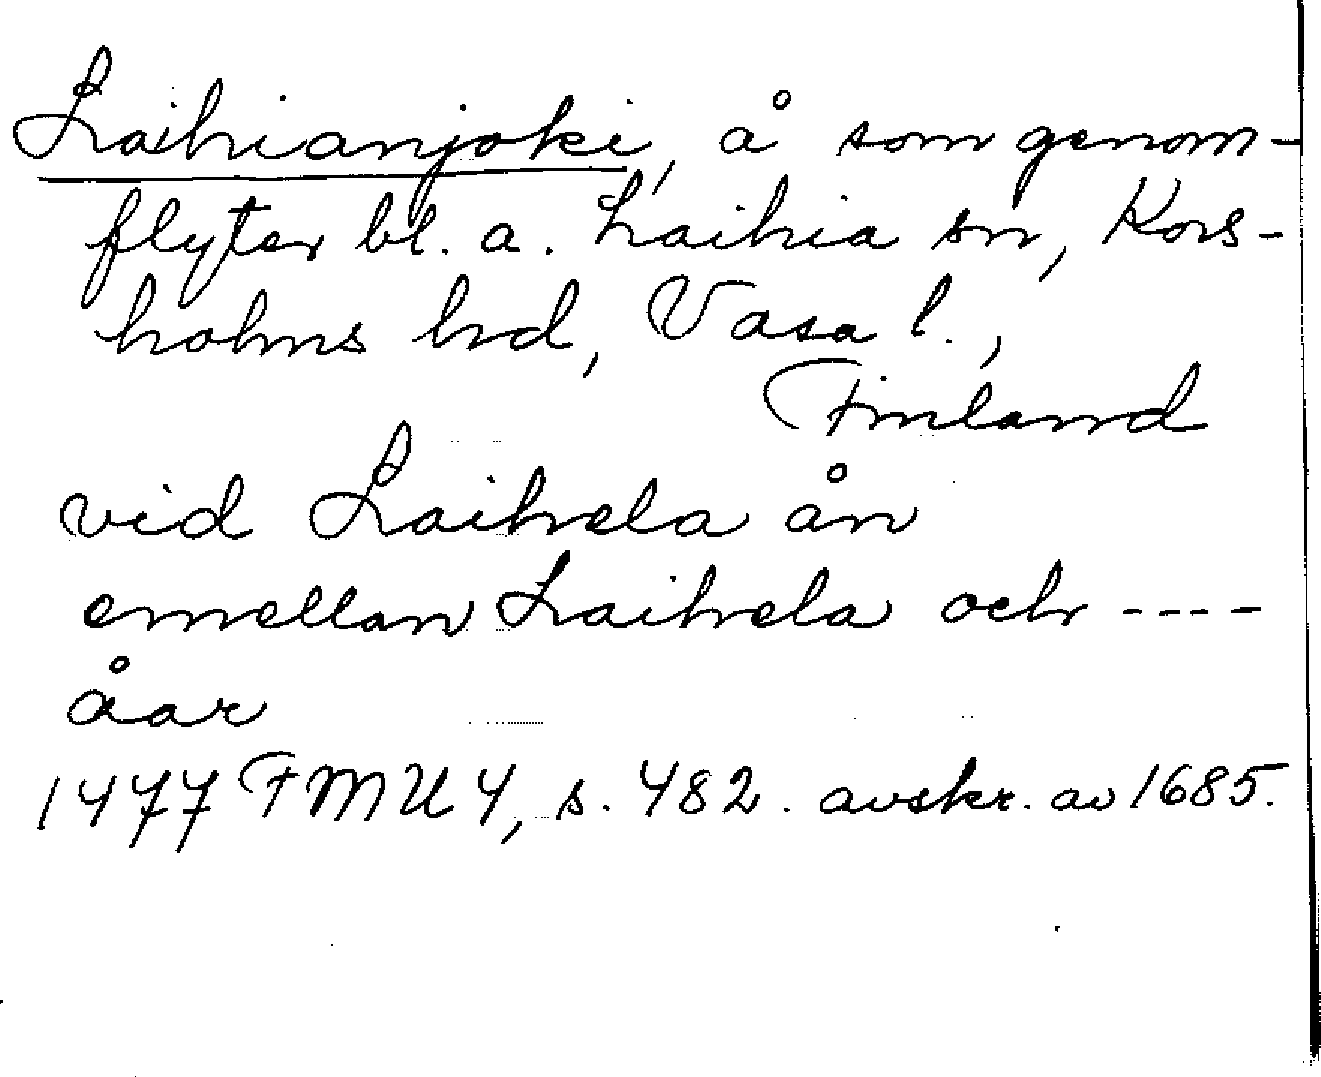 Laihianjoki, å som genom-
flyter bl. a. Laihia sn, Kors-
holms hd, Vasa l.,
Finland
vid Laihela ån
emellan Laihela och ----
åar
1477 FMU 4, s. 482. avskr. av 1685.